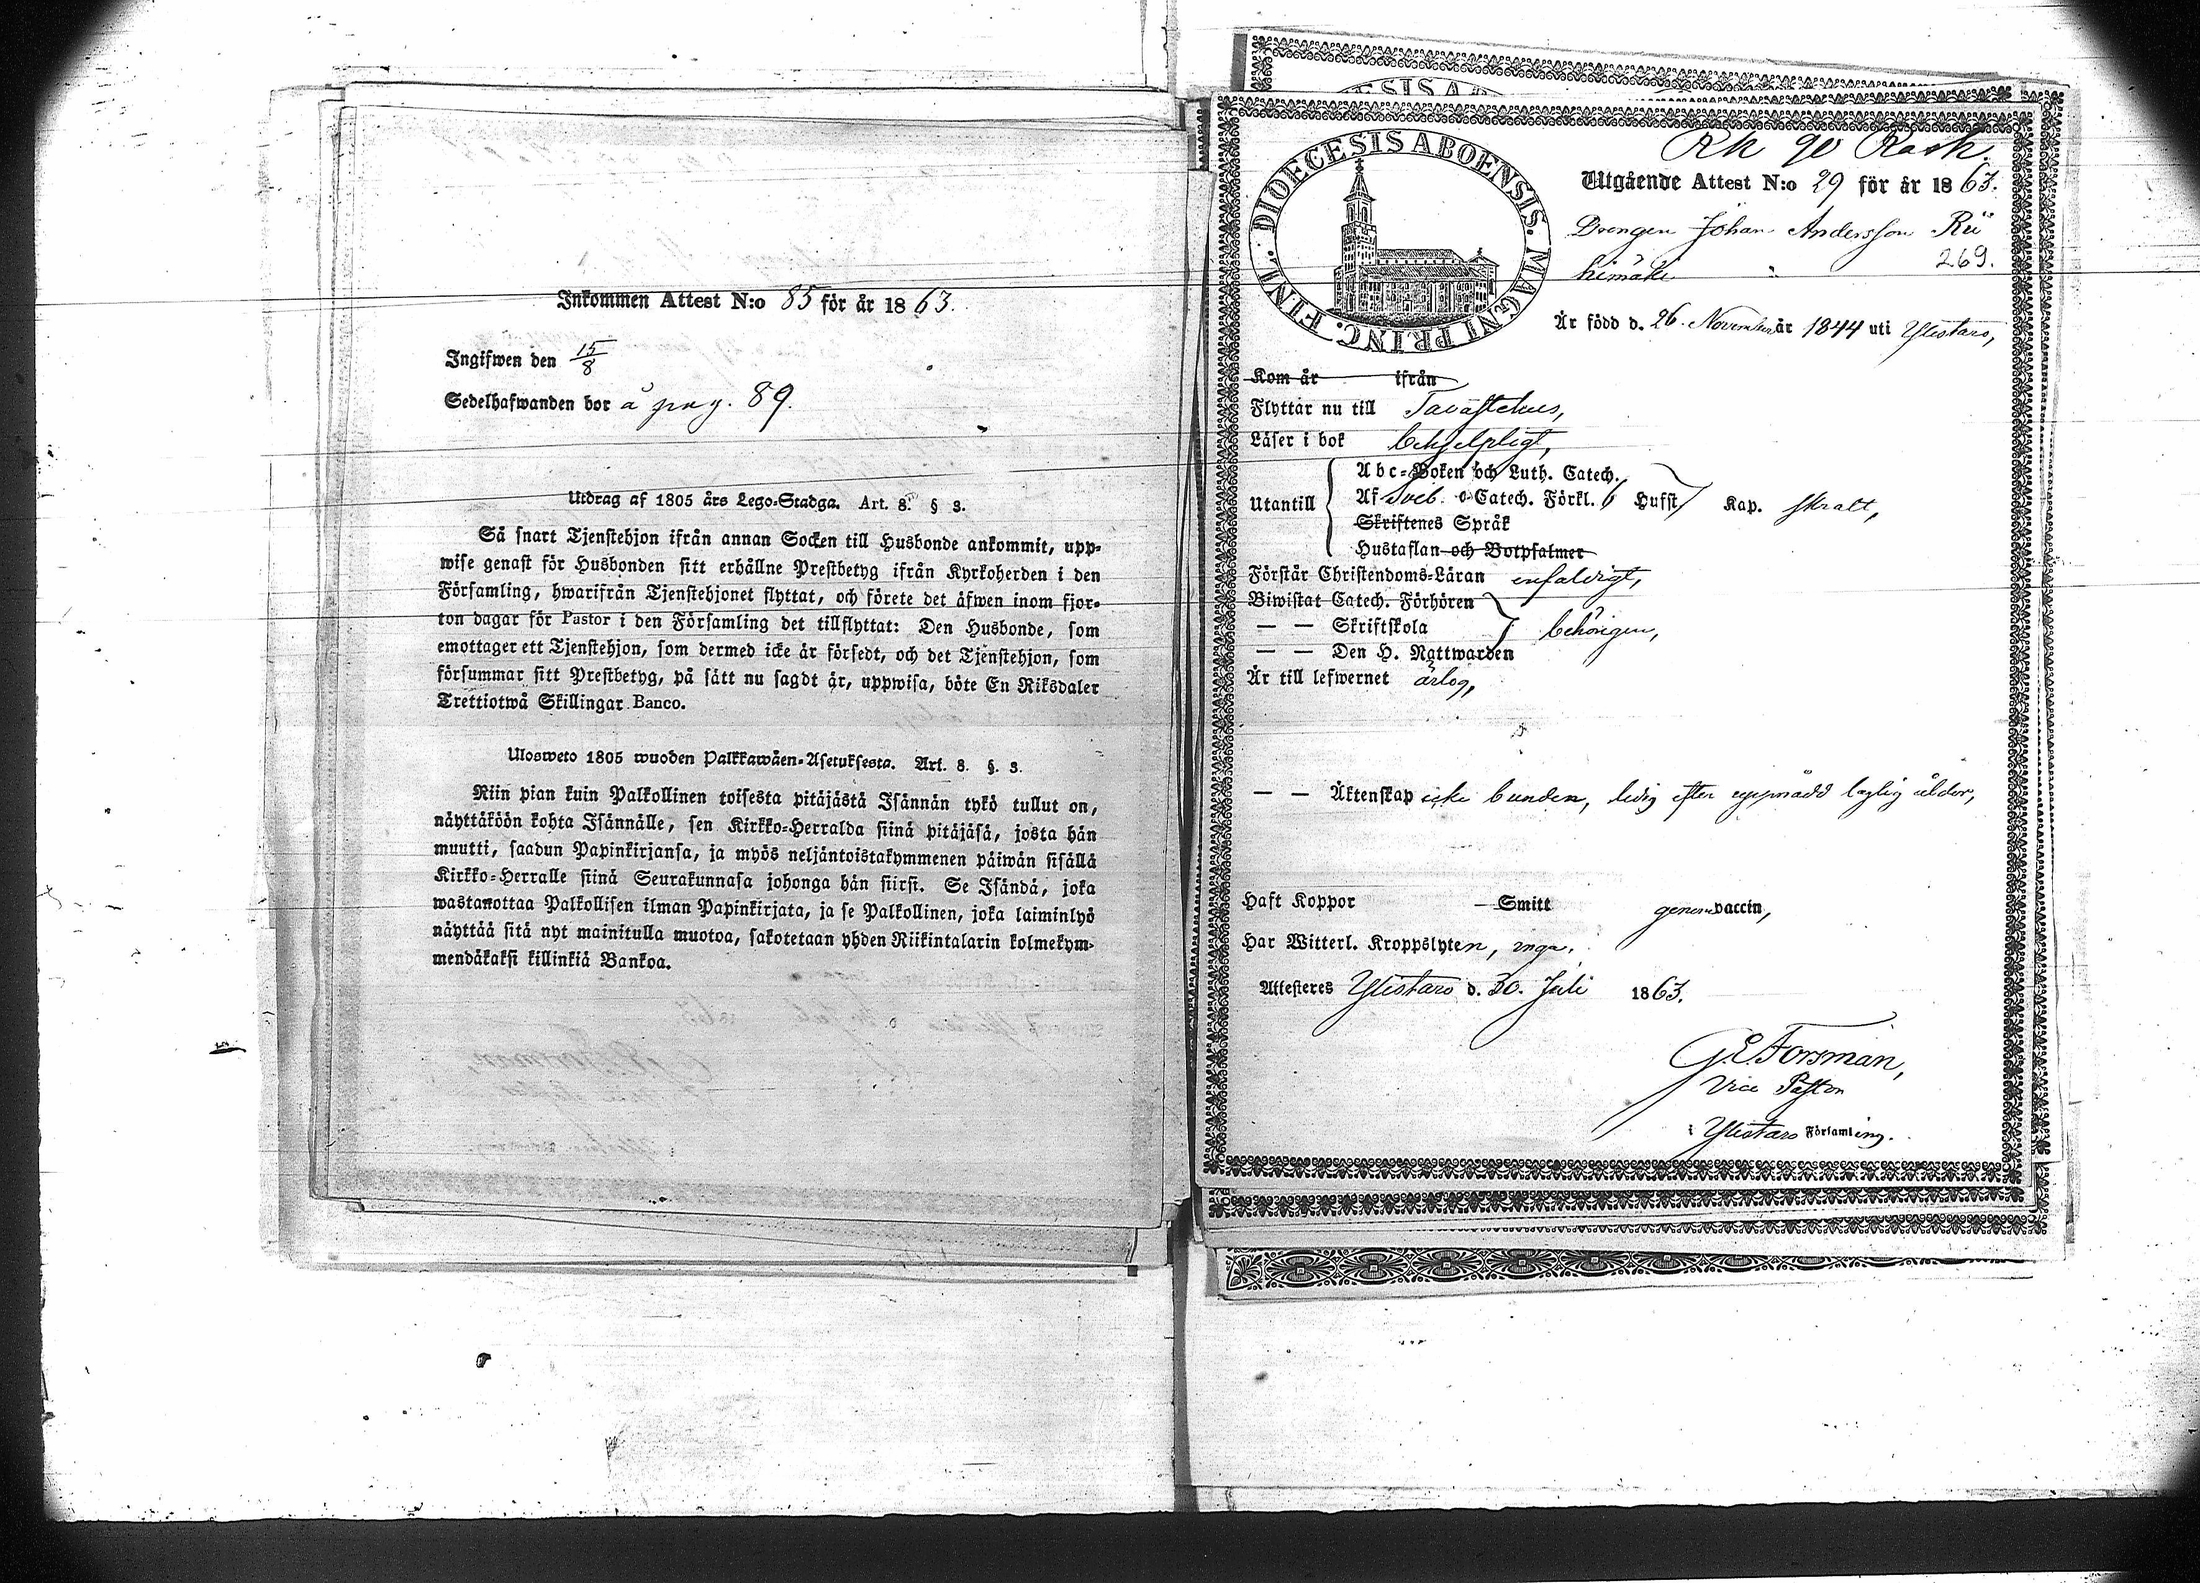 Inkommen Attest N:o 85 för år 1863.
Ingifwen den 15/8
Sedelhafwanden bor å pag. 89.
Utdrag af 1805 års Lego-Stadga. Art. 8. § 3.
Så snart Tjenstehjon ifrån annan Socken till Husbonde ankommit, upp-
wise genast för Husbonden sitt erhållne Prestbetyg ifrån Kyrkoherden i den
Församling, hwarifrån Tjenstehjonet flyttat, och förete det äfwen inom fjor-
ton dagar för Pastor i den Församling det tillflyttat: Den Husbonde, som
emottager ett Tjenstehjon, som dermed icke är försedt, och det Tjenstehjon, som
försummar sitt Prestbetyg, på sätt nu sagdt är, uppwisa, böte En Riksdaler
Trettiotwå Skillingar Banco.
Uloswеto 1805 wuoden Palkkawäen-Asetuksesta. Art. 8. §. 3.
Niin pian kuin Palkollinen toisesta pitäjästä Isännän tykö tullut on,
näyttäköön kohta Isännälle, sen Kirkko-Herralda siinä pitäjäsä, josta hän
muutti, saadun Papinkirjansa, ja myös neljäntoistakymmenen päiwän sisällä
Kirkko-Herralle siinä Seurakunnasa johonga hän siirsi. Se Isändä, joka
wastanottaa Palkollisen ilman Papinkirjata, ja se Palkollinen, joka laiminlyö
näyttää sitä nyt mainitulla muotoa, sakotetaan yhden Riikintalarin kolmekym-
mendäkaksi killinkiä Bankoa.
DIOECESIS ABOENSIS. MAGNI PRINC. FINL.
Rk 90 Kask.
Utgående Attest N:o 29 för år 1863.
Drengen Johan Andersson Rii
himäki 269.
Är född d. 26. November år 1844 uti Ylistaro,
Kom år ifrån
Flyttar nu till Tavastehus,
Läser i bok behjelpligt,
Utantill
Abc-Boken och Luth. Catech.
Af Sveb. Catech. Förkl. 6 Hufst Kap. skralt,
Skriftenes Språk
Hustaflan och Botpsalmer
Förstår Christendoms-Läran enfaldigt,
Biwistat Catech. Förhören
— — Skriftskola behörigen,
— — Den H. Nattwarden
Är till lefwernet ärlog,
— — Äktenskap icke bunden, ledig efter uppnådd laglig ålder,
Haft Koppor — Smitt genom vaccin,
Har Witterl. Kroppslyten, inga.
Attesteres Ylistaro d. 30. Juli 1863.
G E Forsman,
Vice Pastor
i Ylistaro Församling.